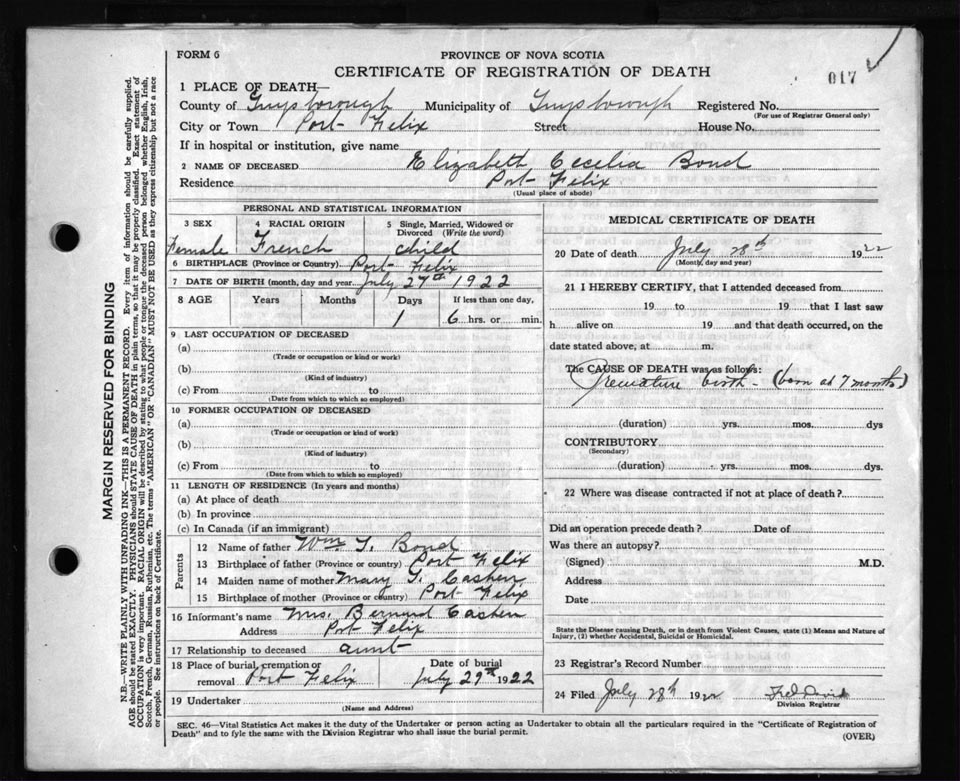 FORM 6
PROVINCE OF NOVA SCOTIA
CERTIFICATE OF REGISTRATION OF DEATH
017
1 PLACE OF DEATH—
County of Guysborough Municipality of Guysborough Registered No.
(For use of Registrar General only)
City or Town Port Felix Street House No.
If in hospital or institution, give name
2 NAME OF DECEASED Elizabeth Cecilia Bond
Residence Port Felix
(Usual place of abode)
PERSONAL AND STATISTICAL INFORMATION
3 SEX 4 RACIAL ORIGIN 5 Single, Married, Widowed or Divorced (Write the word)
Female French child
6 BIRTHPLACE (Province or Country) Port Felix
7 DATE OF BIRTH (month, day and year) July 27th 1922
8 AGE Years Months Days If less than one day,
1 6 hrs. or min.
9 LAST OCCUPATION OF DECEASED
(a)
(Trade or occupation or kind or work)
(b)
(Kind of industry)
(c) From to
(Date from which to which so employed)
10 FORMER OCCUPATION OF DECEASED
(a)
(Trade or occupation or kind of work)
(b)
(Kind of industry)
(c) From to
(Date from which to which so employed)
11 LENGTH OF RESIDENCE (In years and months)
(a) At place of death
(b) In province
(c) In Canada (if an immigrant)
Parents
12 Name of father Wm T. Bond
13 Birthplace of father (Province or country) Port Felix
14 Maiden name of mother Mary T. Cashen
15 Birthplace of mother (Province or country) Port Felix
16 Informant's name Mrs. Bernard Cashen
Address Port Felix
17 Relationship to deceased aunt
18 Place of burial, cremation or removal Port Felix Date of burial July 29th 1922
19 Undertaker
(Name and Address)
MEDICAL CERTIFICATE OF DEATH
20 Date of death July 28th 1922
(Month, day and year)
21 I HEREBY CERTIFY, that I attended deceased from
19 to 19 that I last saw
h alive on 19 and that death occurred, on the
date stated above, at m.
The CAUSE OF DEATH was as follows:
Premature birth - (born at 7 months)
(duration) yrs. mos. dys
CONTRIBUTORY
(Secondary)
(duration) yrs. mos. dys.
22 Where was disease contracted if not at place of death?
Did an operation precede death? Date of
Was there an autopsy?
(Signed) M.D.
Address
Date
State the Disease causing Death, or in death from Violent Causes, state (1) Means and Nature of
Injury, (2) whether Accidental, Suicidal or Homicidal.
23 Registrar's Record Number
24 Filed July 28th 1922
Division Registrar
SEC. 46—Vital Statistics Act makes it the duty of the Undertaker or person acting as Undertaker to obtain all the particulars required in the "Certificate of Registration of
Death" and to fyle the same with the Division Registrar who shall issue the burial permit.
(OVER)
MARGIN RESERVED FOR BINDING
N.B.—WRITE PLAINLY WITH UNFADING INK—THIS IS A PERMANENT RECORD. Every item of information should be carefully supplied.
AGE should be stated EXACTLY. PHYSICIANS should STATE CAUSE OF DEATH in plain terms, so that it may be properly classified. Exact statement of
OCCUPATION is very important. RACIAL ORIGIN will be described by stating to what people or tongue the deceased person belonged whether English, Irish,
Scotch, French, German, Russian, Ruthenian, etc. The terms "AMERICAN" OR "CANADIAN" MUST NOT BE USED as they express citizenship but not a race
or people. See instructions on back of Certificate.